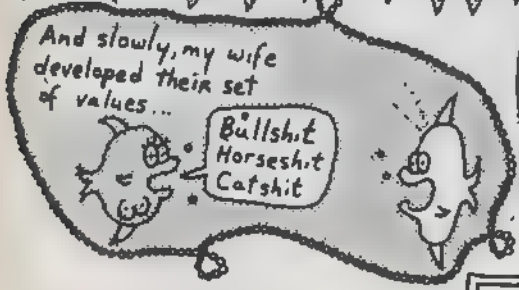 And slowly, my wife
developed their set
of values...
Bullshit
Horseshit
Catshit